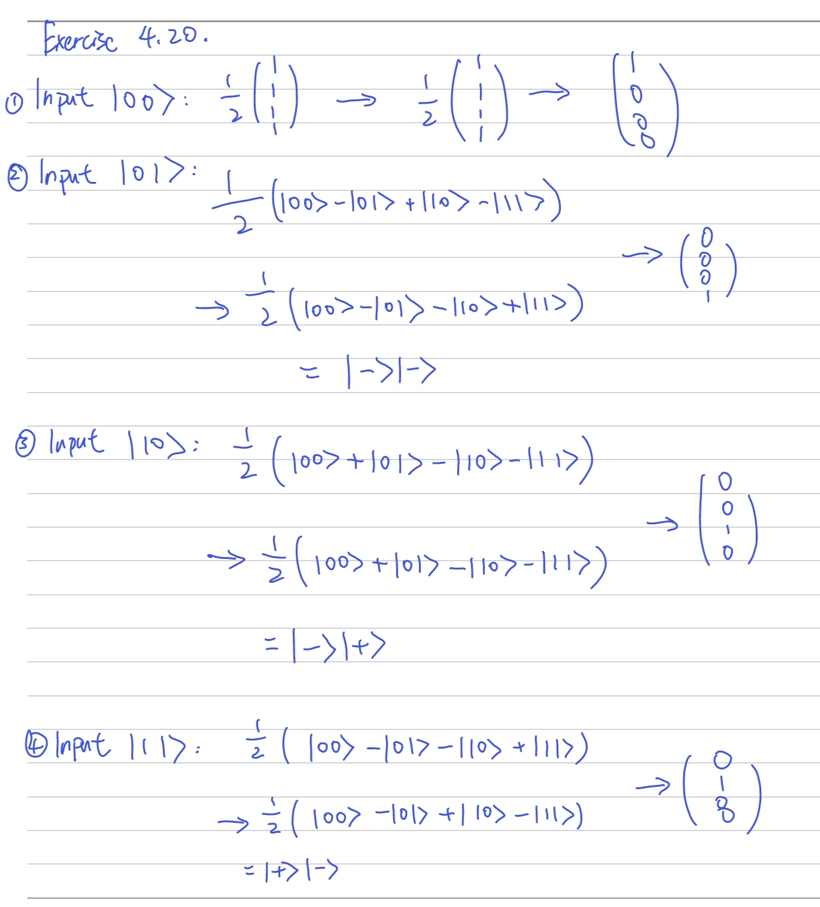 Exercise 4.20.
① Input |00>: 1/2 (1 1 1 1) → 1/2 (1 1 1 1) → (1 0 0 0)
② Input |01>: 1/2 (|00>-|01>+|10>-|11>)
→ (0 0 0 1)
→ 1/2 (|00>-|01>-|10>+|11>)
= |->|->
③ Input |10>: 1/2 (|00>+|01>-|10>-|11>)
→ (0 0 1 0)
→ 1/2 (|00>+|01>-|10>-|11>)
= |->|+>
④ Input |11>: 1/2 (|00>-|01>-|10>+|11>)
→ (0 1 0 0)
→ 1/2 (|00>-|01>+|10>-|11>)
= |+>|->